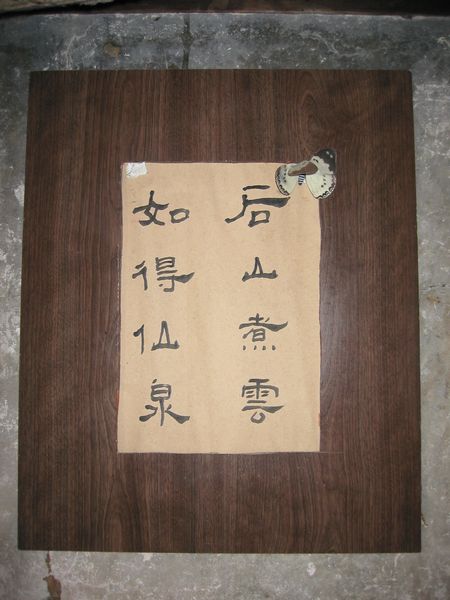 后山煮雲
如得仙泉